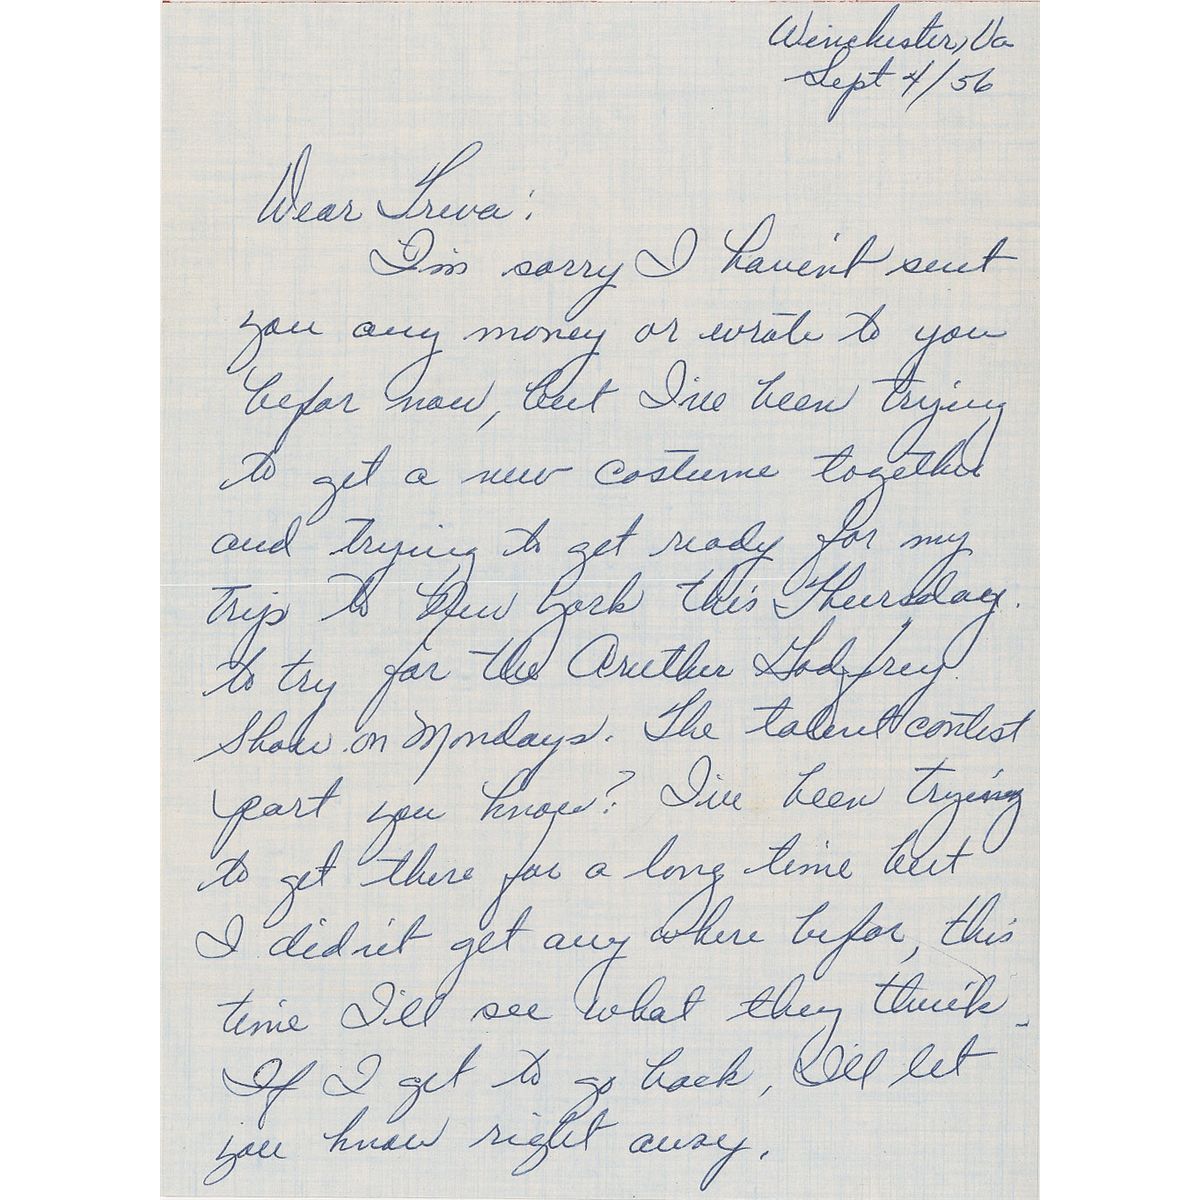 Winchester, Va
Sept 4/56
Dear Treva:
I'm sorry I haven't sent
you any money or wrote to you
befor now, but I've been trying
to get a new costume together
and trying to get ready for my
trip to New York this Thursday.
to try for the Aruther Godfrey
Show on Mondays. The talent contest
part you know? I've been trying
to get there for a long time but
I didn't get any where befor, this
time I'll see what they think.
If I get to go back, I'll let
you know right away.